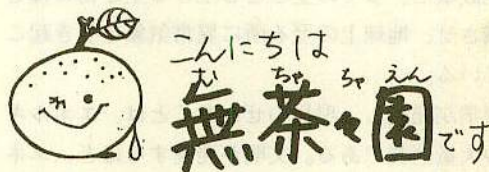 こんにちは
無茶々園です
むちゃちゃえん